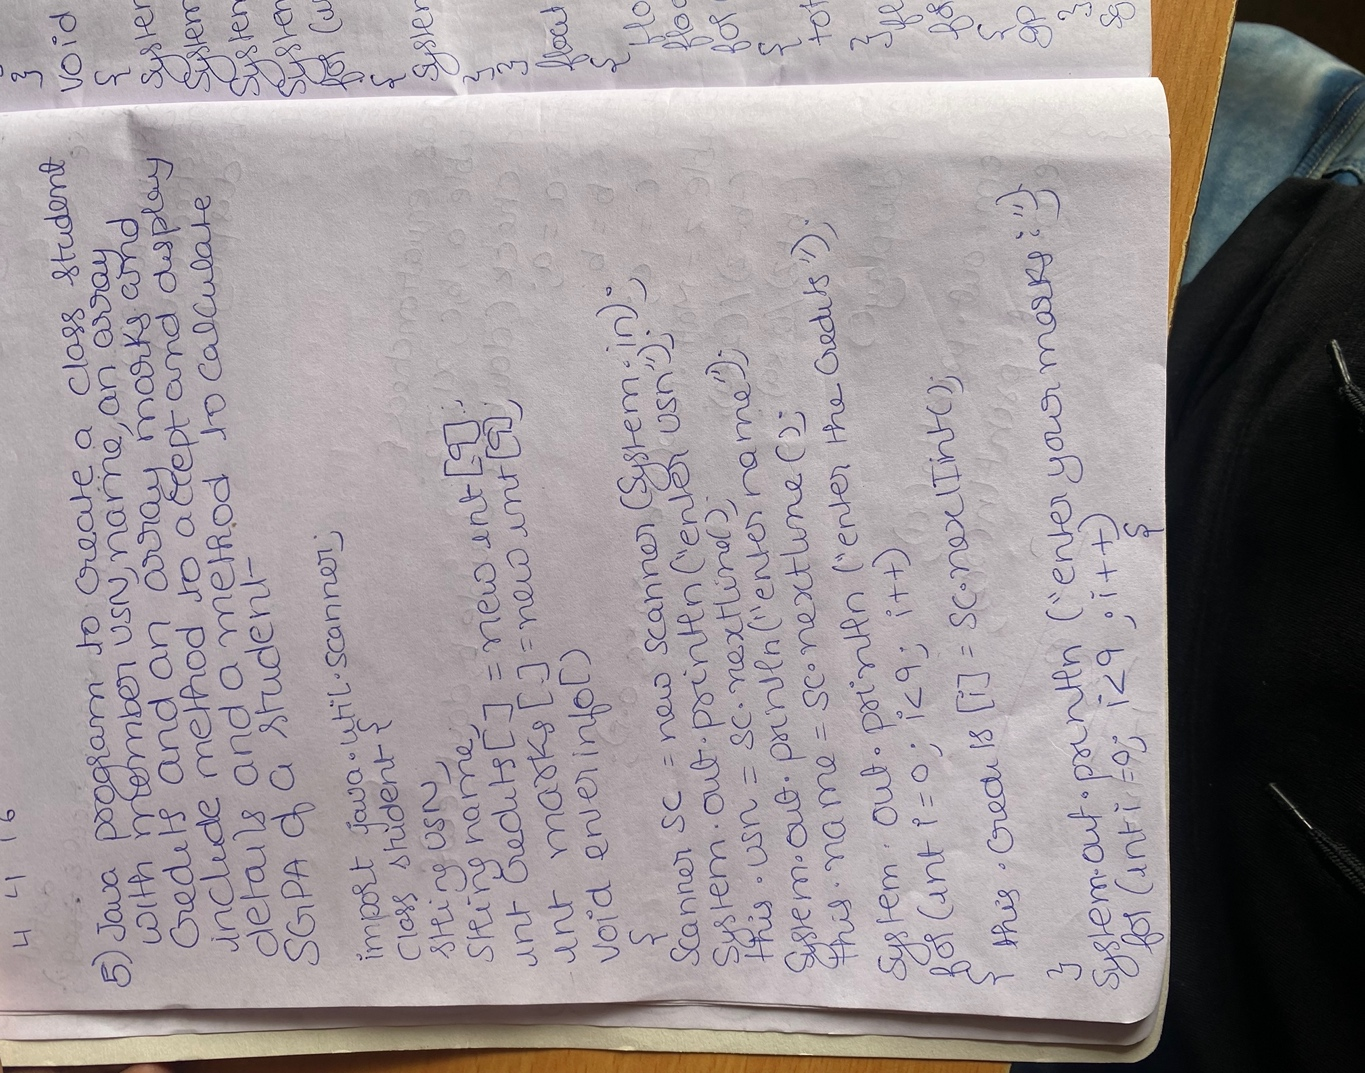 4 4 16
5) Java program to create a class student
with member usn, name, an array
credits and an array marks and
include method to accept and display
details and a method to calculate
SGPA of a student-
import java.util.scanner;
class student {
string usn;
string name;
int credits[] = new int[9];
int marks[] = new int[9];
void enterinfo()
{
Scanner sc = new scanner (System.in);
System.out.println("enter usn");
this.usn = sc.nextline();
System.out.println("enter name");
this.name = sc.nextline();
System.out.println ("enter the credits");
for (int i = 0; i<9; i++)
{
this.credits [i] = sc.nextInt();
}
System.out.println ("enter your marks:");
for (int i=0; i<9; i++)
{
}
void
{
System
System
System
System
for (
{
System
}
}
{
for
{
tot
}
for
{
}